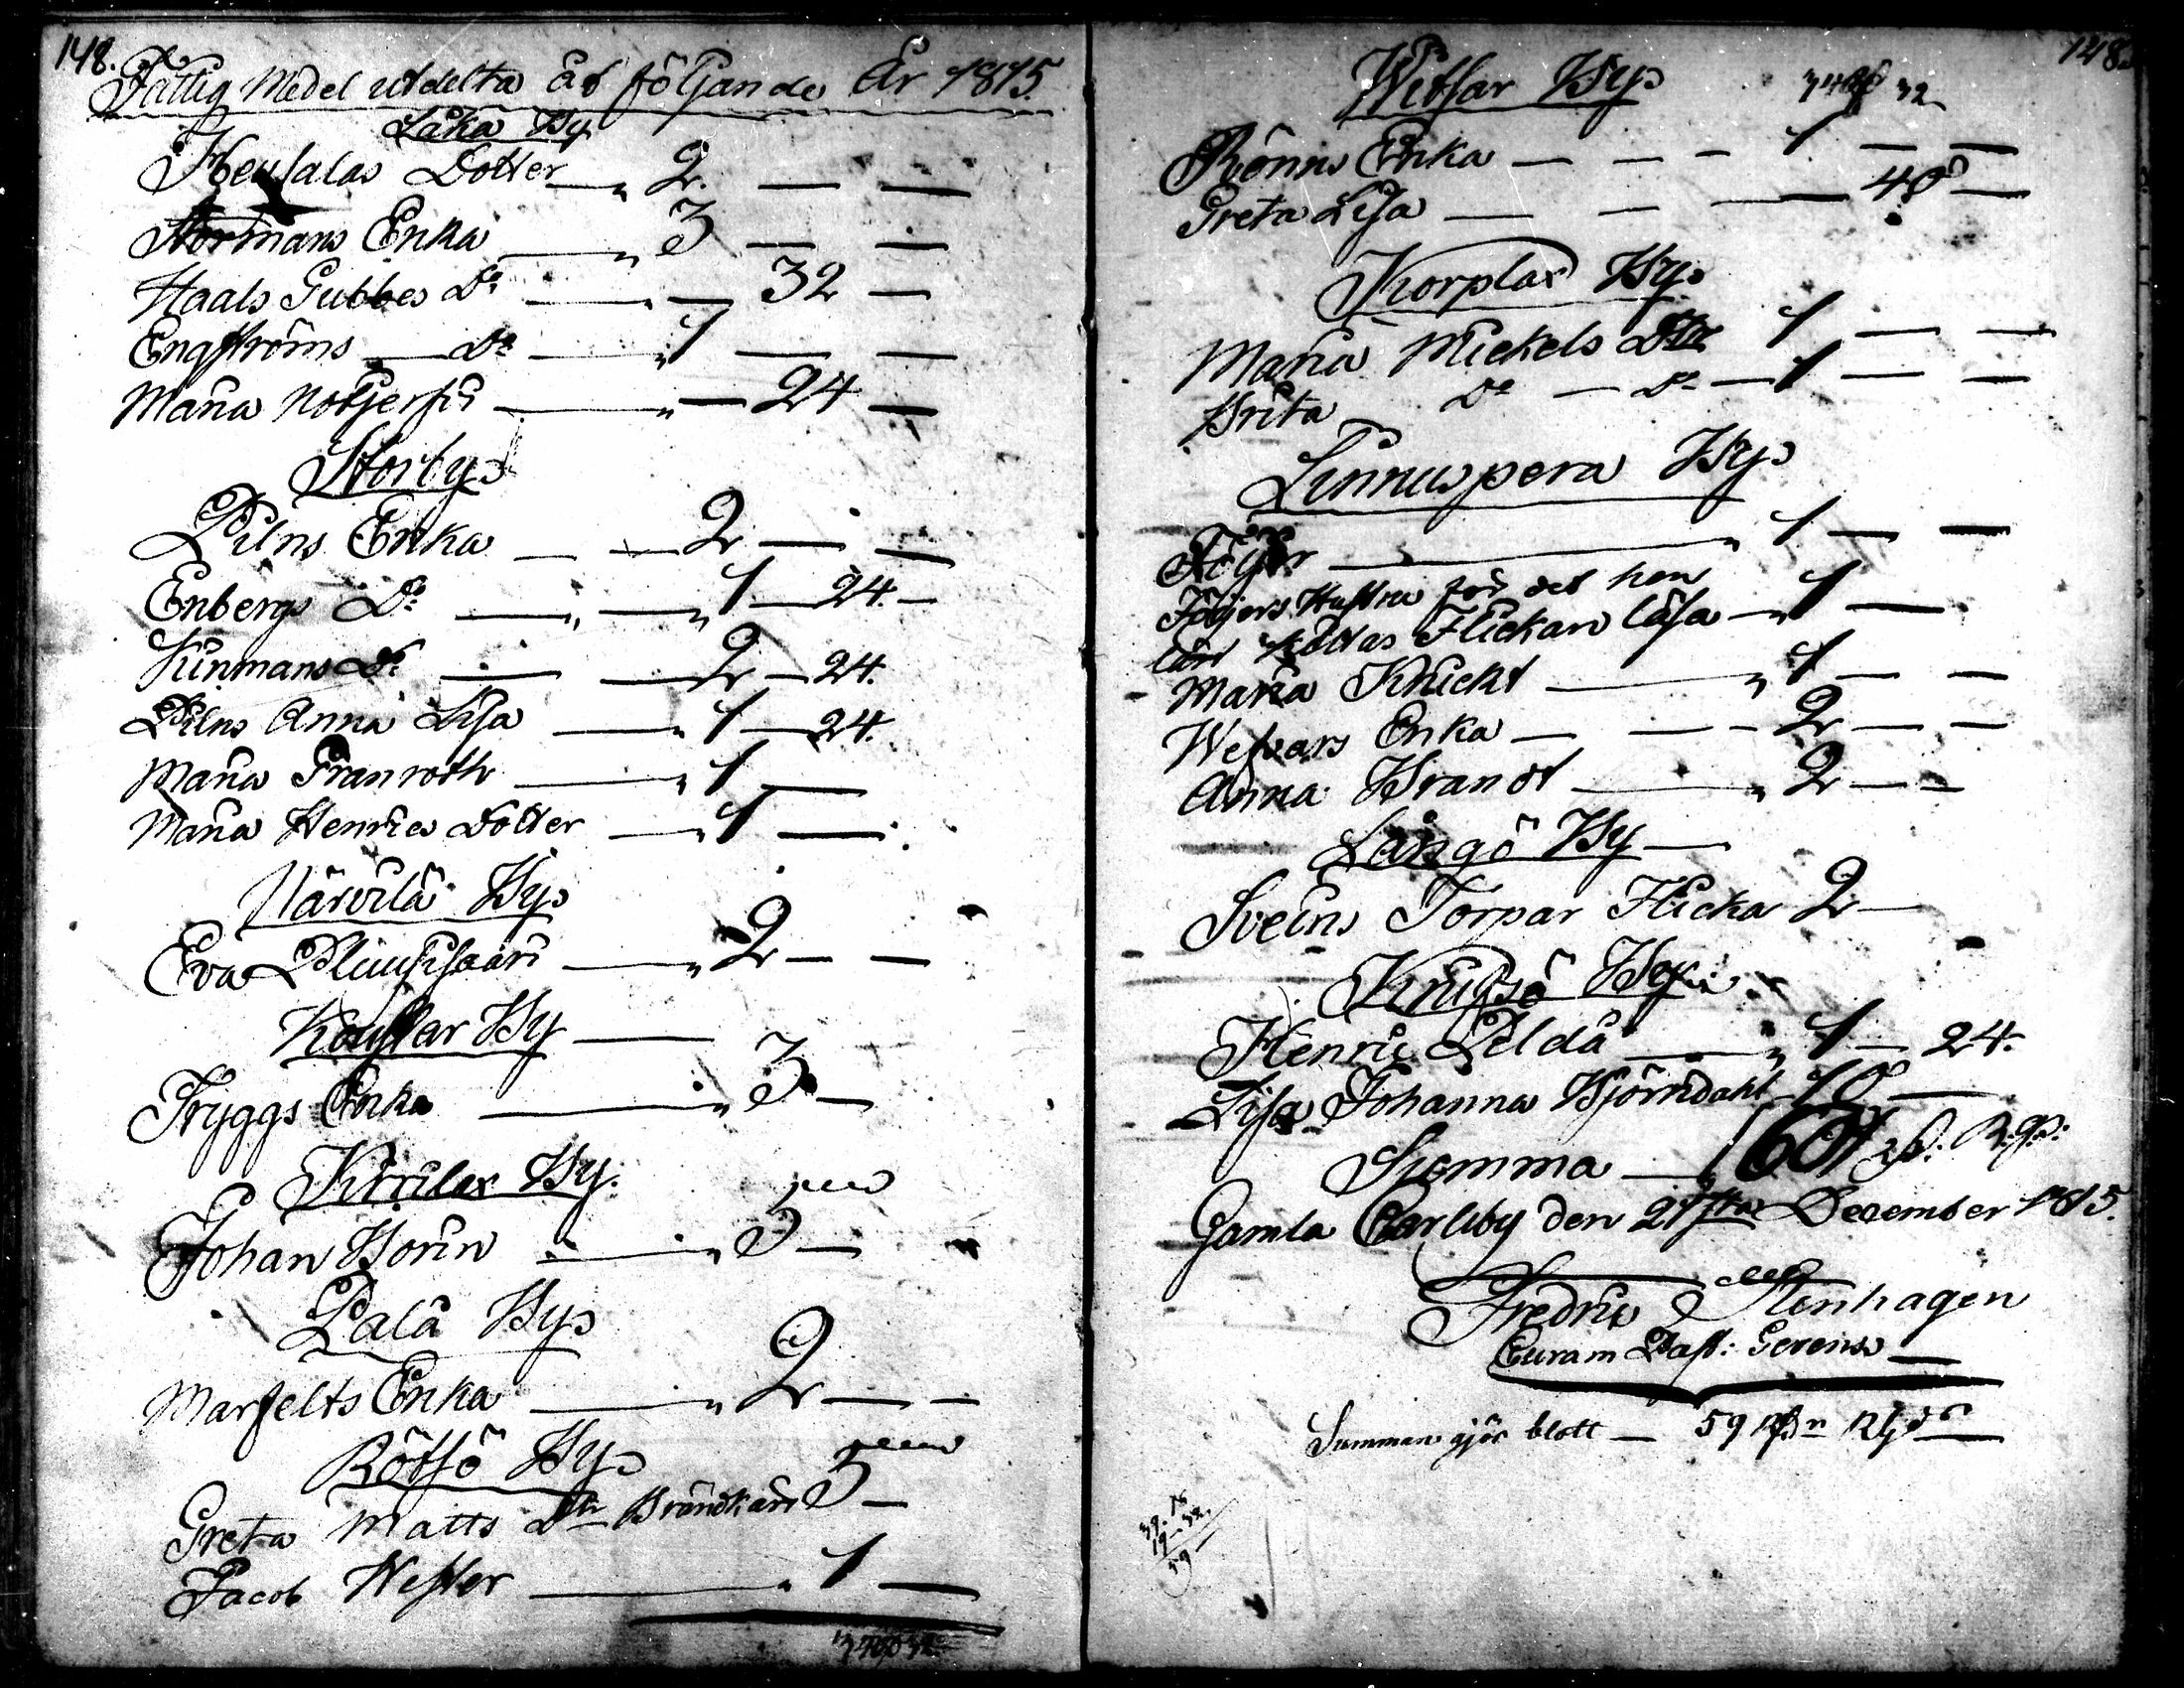 148.
Fattig Medel utdelta åt följande År 1815.
Såka By
Heusalas Dotter — „ 2. — —
Normans Enka — „ 3 — —
Haals Gubbes Do — „ — 32 —
Engströms — Do — „ 1 — —
Maria — „ — 24 —
Storby
Pilns Enka — — 2 — —
Enbergs Do — „ — „ 1 — 24. —
Kinmans Do — — 2 — 24.
Pilns Anna Lisa — „ 1 — 24.
Maria Granroth — „ 1 —
Maria Henrics Dotter — „ 1 —
Närvilä By
Eva — „ 2 — —
Kouslar By —
Tryggs Enka — „ 3 —
Kirilax By.
Johan Borin — „ 5 —
Palå By
Marfelts Enka — „ 2 — —
Rötsö By
Greta Matts Dtr Brändkärr 5 —
Jacob Wester — „ 1 —
148.
Witsar By 32
Rönns Enka — — — 1 — —
Greta Lisa — — — 40 —
Korplax By
Maria Mickels Dtr 1 — —
Brita Do — Do — 1 — —
Linnuspera By
— „ 1 — —
Jägers Hustru för det hon
lärt Köttas Flickan läsa — „ 1 —
Maria Knickt — „ 1 — —
Enka — — — 2 — —
Anna Brandt — „ 2 — —
Långö By —
Sveins Torpar Flicka 2 —
Knifsö By
Henric Peldå — „ 1 — 24.
Lisa Johanna Björndahl — 10 —
Summa — 60 Rgs:
Gamla Carleby den 21sta December 1815.
Fredric Stenhagen
Curam Past: Gerens —
Summan gjör blott — 59 —
19 – 32.
59